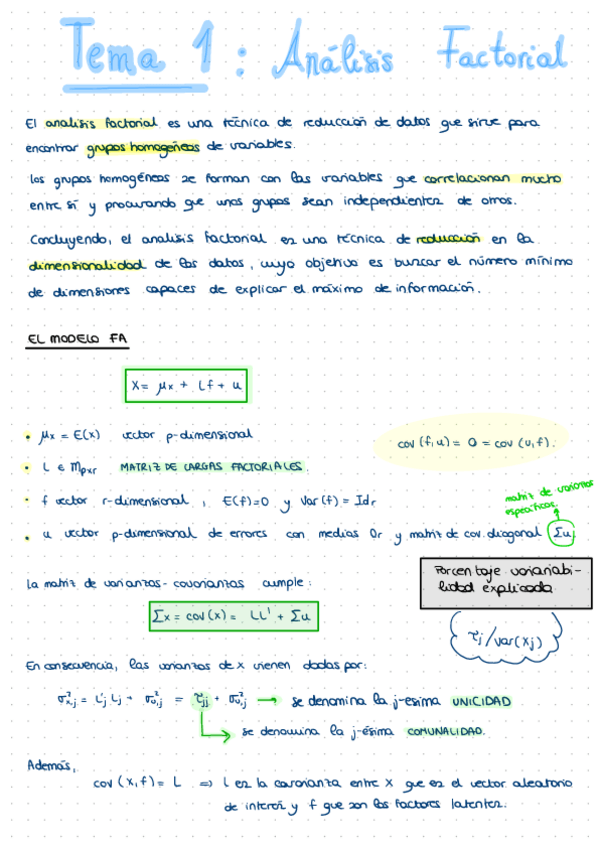 Tema 1: Análisis Factorial
El analisis factorial es una técnica de reducción de datos que sirve para
encontrar grupos homogéneos de variables.
Los grupos homogéneos se forman con las variables que correlacionan mucho
entre sí y procurando que unos grupos sean independientes de otros.
Concluyendo, el analisis factorial es una técnica de reducción en la
dimensionalidad de los datos, cuyo objetivo es buscar el número mínimo
de dimensiones capaces de explicar el máximo de información.
EL MODELO FA
X = μx + Lf + u
• μx = E(x) vector p-dimensional
cov(f,u) = 0 = cov(u,f).
• L ∈ Mpxr MATRIZ DE CARGAS FACTORIALES.
• f vector r-dimensional, E(f)=0 y Var(f) = Idr
matriz de varianzas
específicas
• u vector p-dimensional de errores con medias 0r y matriz de cov. diagonal Σu
Porcentaje variabi-
lidad explicada
La matriz de varianzas-covarianzas cumple:
Σx = cov(x) = LL' + Σu
τj/var(xj)
En consecuencia, las varianzas de x vienen dadas por:
σ²x,j = L'j Lj + σ²u,j = τjj + σ²u,j → se denomina la j-esima UNICIDAD
se denomina la j-ésima COMUNALIDAD.
Además,
cov(x,f) = L ⇒ L es la covarianza entre X que es el vector aleatorio
de interés y f que son los factores latentes.